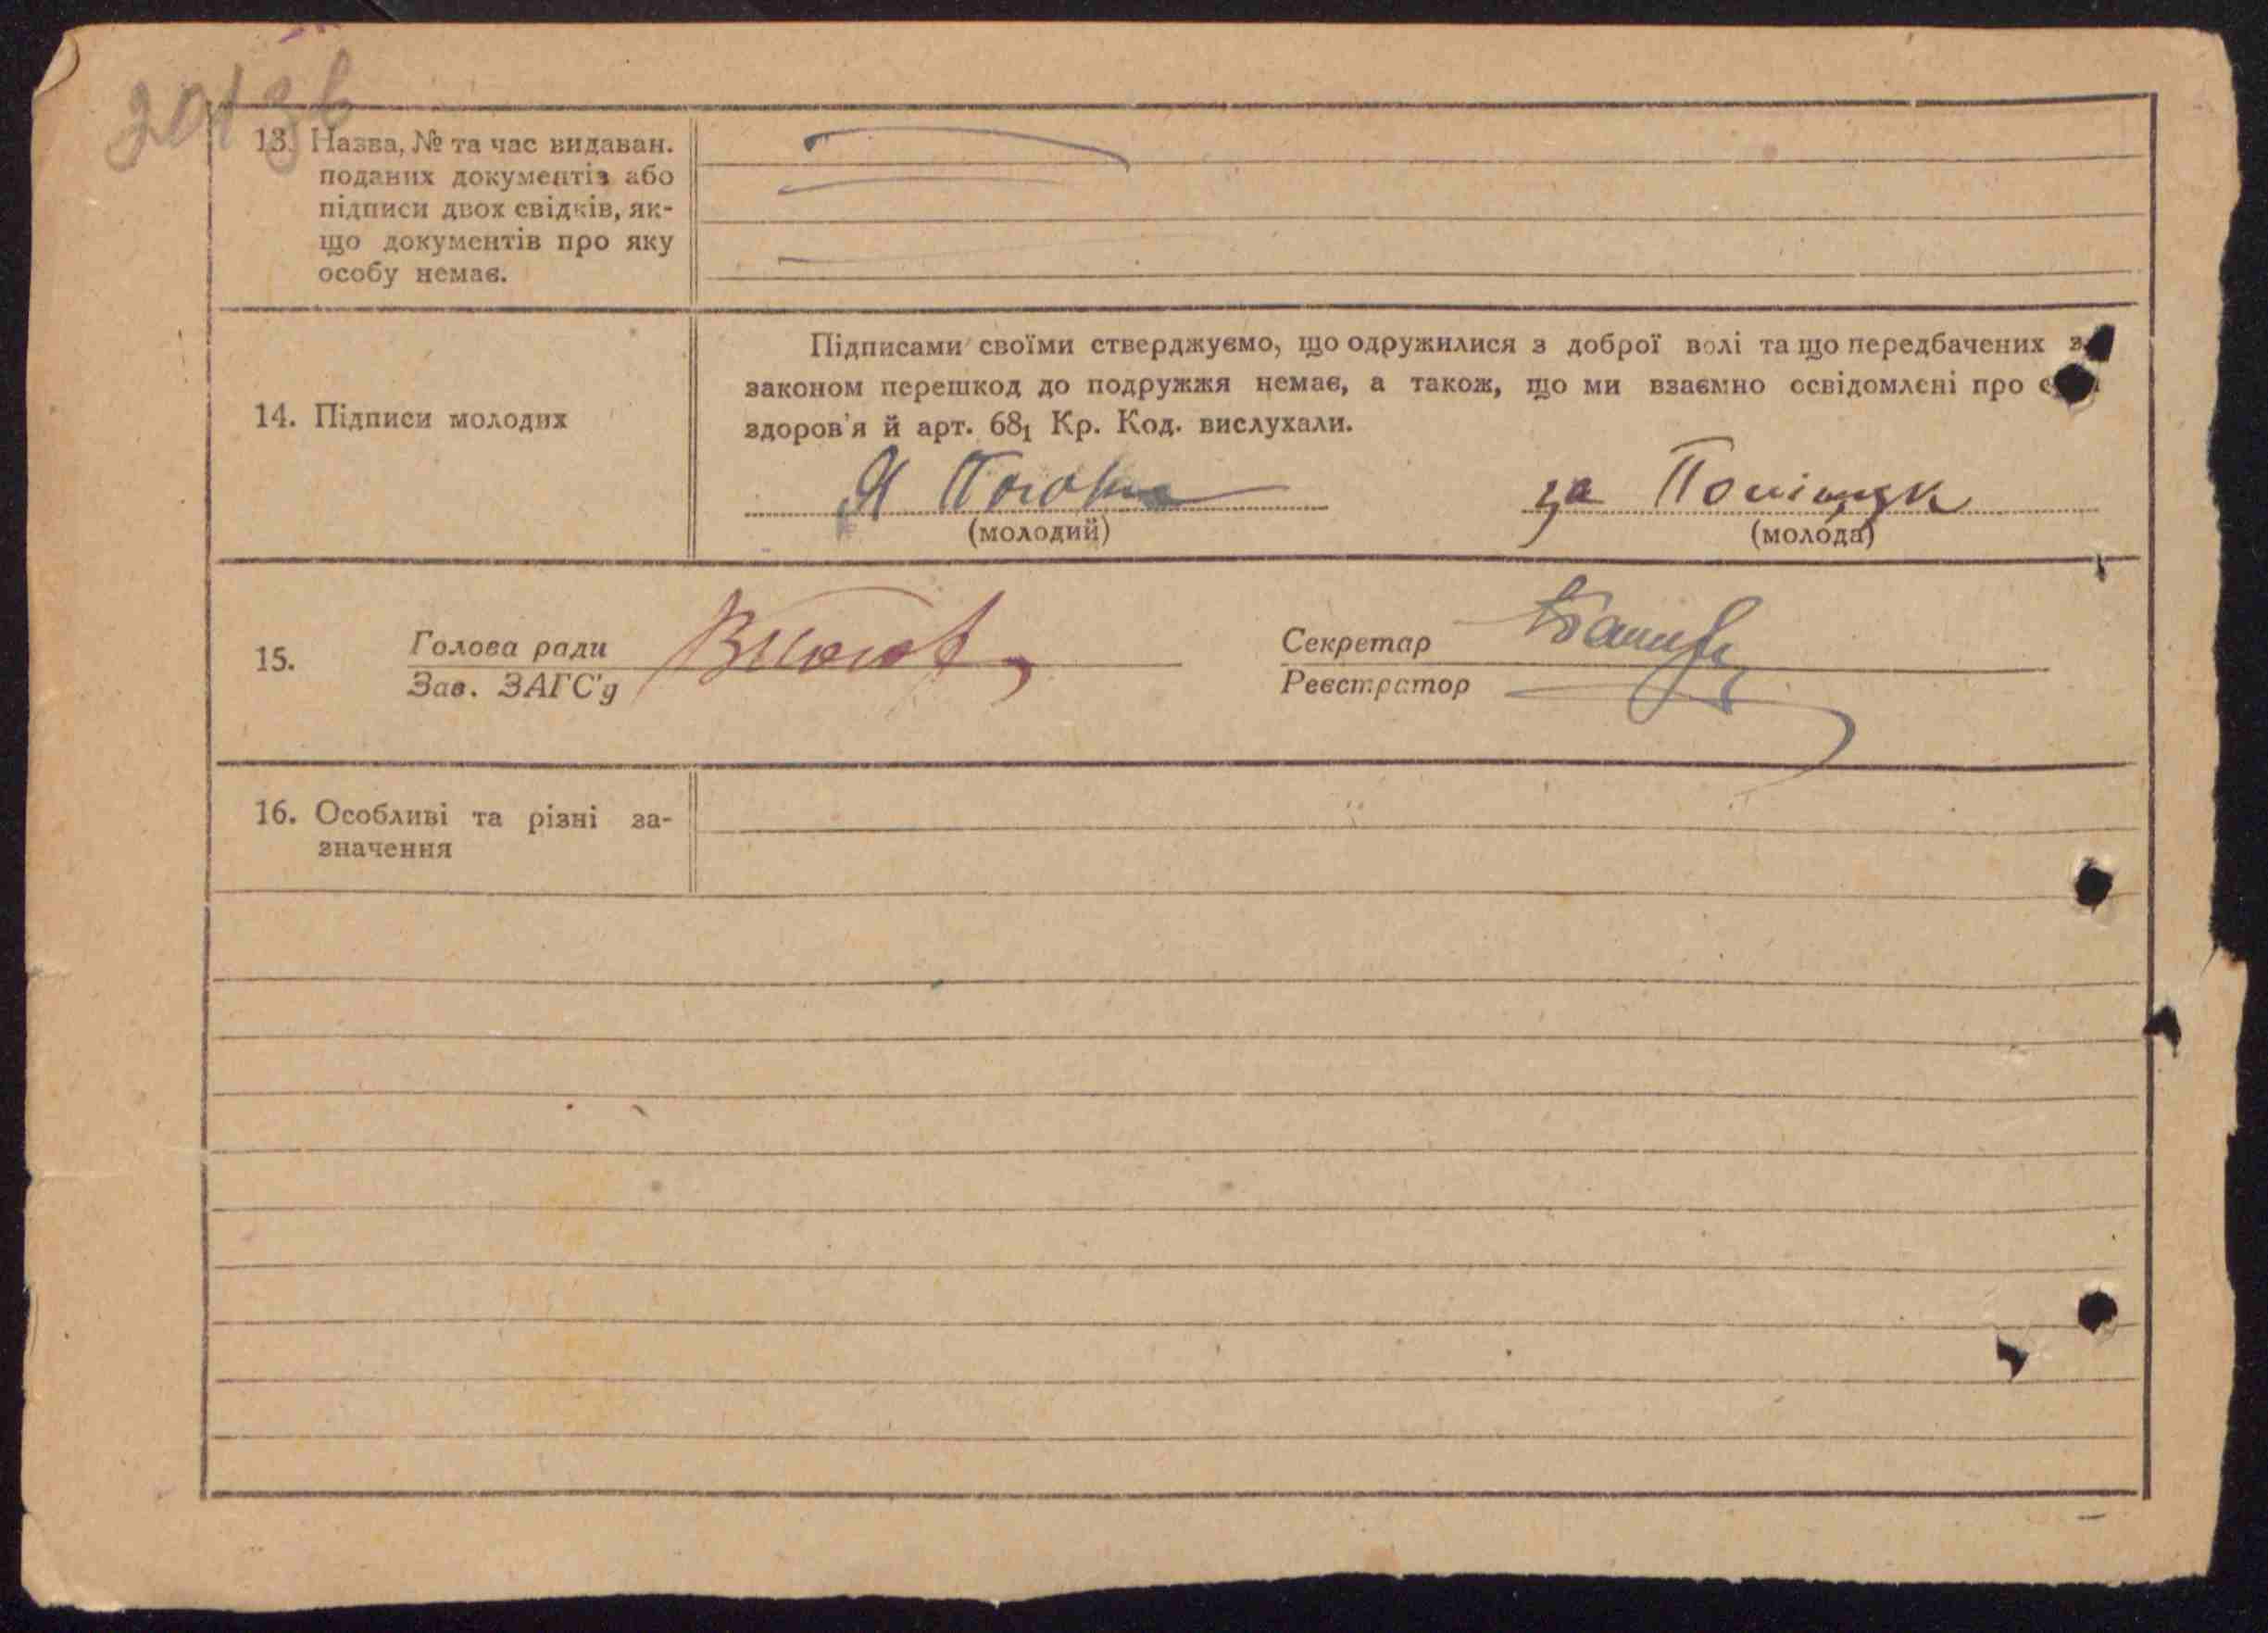 201 зв
13. Назва, № та час видаван.
поданих документів або
підписи двох свідків, як-
що документів про яку
особу немає.
14. Підписи молодих
Підписами своїми стверджуємо, що одружилися з доброї волі та що передбачених за
законом перешкод до подружжя немає, а також, що ми взаємно освідомлені про стан
здоров'я й арт. 68₁ Кр. Код. вислухали.
за
(молодий) (молода)
15. Голова ради Секретар
Зав. ЗАГС'у Реєстратор
16. Особливі та різні за-
значення